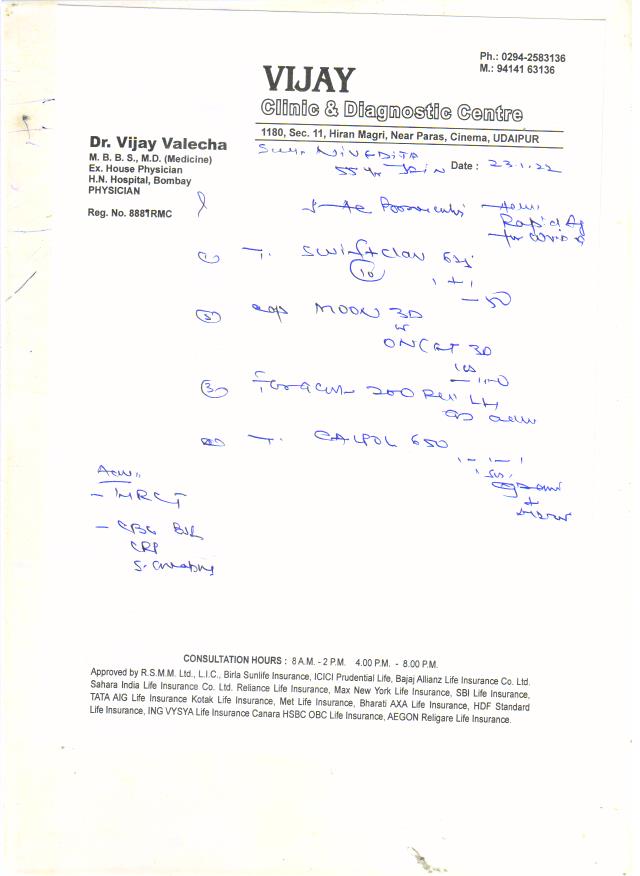 Ph.: 0294-2583136
M.: 94141 63136
VIJAY
Clinic & Diagnostic Centre
1180, Sec. 11, Hiran Magri, Near Paras, Cinema, UDAIPUR
Dr. Vijay Valecha
M. B. B. S., M.D. (Medicine)
Ex. House Physician
H.N. Hospital, Bombay
PHYSICIAN
Reg. No. 8881RMC
NIVEDITA
55 yr JAIN Date : 23.1.22
Rapid Ag
for covid
① T. Swiftclav 625
10
cap MOON 3D
or
ONCET 3D
③ 200
T. CALPOL 650
Adv.
- HRCT
- CBC
CRP
CONSULTATION HOURS : 8 A.M. - 2 P.M. 4.00 P.M. - 8.00 P.M.
Approved by R.S.M.M. Ltd., L.I.C., Birla Sunlife Insurance, ICICI Prudential Life, Bajaj Allianz Life Insurance Co. Ltd.
Sahara India Life Insurance Co. Ltd. Reliance Life Insurance, Max New York Life Insurance, SBI Life Insurance,
TATA AIG Life Insurance Kotak Life Insurance, Met Life Insurance, Bharati AXA Life Insurance, HDF Standard
Life Insurance, ING VYSYA Life Insurance Canara HSBC OBC Life Insurance, AEGON Religare Life Insurance.